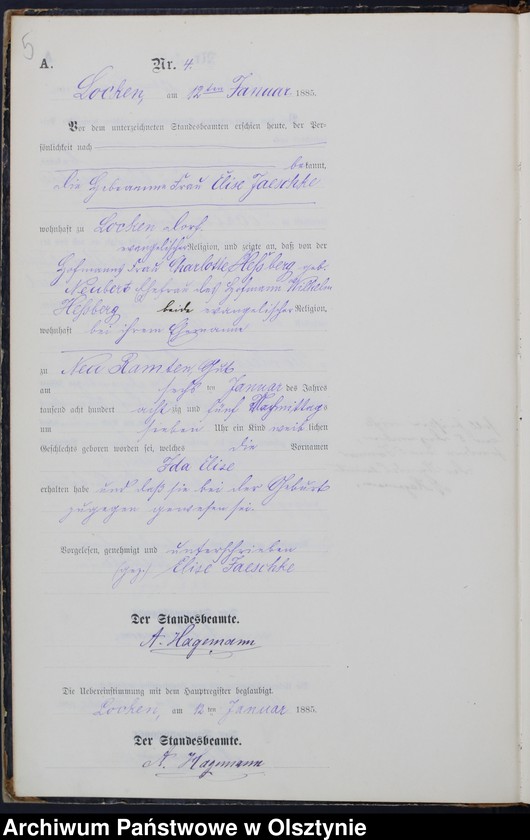 5
A. Nr. 4.
Locken, am 12ten Januar 1885.
Vor dem unterzeichneten Standesbeamten erschien heute, der Per-
sönlichkeit nach
bekannt,
die Hebeamme Frau Elise Jaeschke
wohnhaft zu Locken Dorf
evangelischer Religion, und zeigte an, daß von der
Hofmanns Frau Charlotte Heßberg geb.
Neubert Ehefrau des Hofmann Wilhelm
Heßberg beide evangelischer Religion,
wohnhaft bei ihrem Ehemanne
zu Neu Ramten, Gut
am sechs ten Januar des Jahres
tausend acht hundert achtzig und fünf Nachmittags
um sieben Uhr ein Kind weiblichen
Geschlechts geboren worden sei, welches die Vornamen
Ida Elise
erhalten habe und daß sie bei der Geburt
zugegen gewesen sei.
Vorgelesen, genehmigt und unterschrieben
(gez.) Elise Jaeschke
Der Standesbeamte.
A. Hagemann
Die Uebereinstimmung mit dem Hauptregister beglaubigt.
Locken, am 12 ten Januar 1885.
Der Standesbeamte.
A. Hagemann
Archiwum Państwowe w Olsztynie